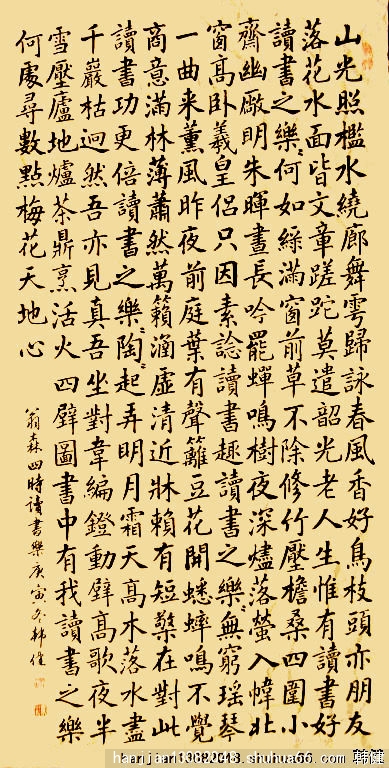 山光照檻水繞廊舞雩歸詠春風香好鳥枝頭亦朋友
落花水面皆文章蹉跎莫遣韶光老人生惟有讀書好
讀書之樂〻何如綠滿窗前草不除修竹壓檐桑四圍小
齋幽厰明朱暉晝長吟罷蟬鳴樹夜深燼落螢入幃北
窗高臥羲皇侶只因素諗讀書趣讀書之樂〻無窮瑤琴
一曲来薰風昨夜前庭葉有聲籬豆花開蟋蟀鳴不覺
商意滿林薄蕭然萬籟涵虛清近牀賴有短檠在對此
讀書功更倍讀書之樂〻陶〻起弄明月霜天高木落水盡
千巖枯迥然吾亦見真吾坐對韋編鐙動壁高歌夜半
雪壓廬地爐茶鼎烹活火四壁圖書中有我讀書之樂
何處尋數點梅花天地心
翁森四時讀書樂庚寅冬韩健
韩健